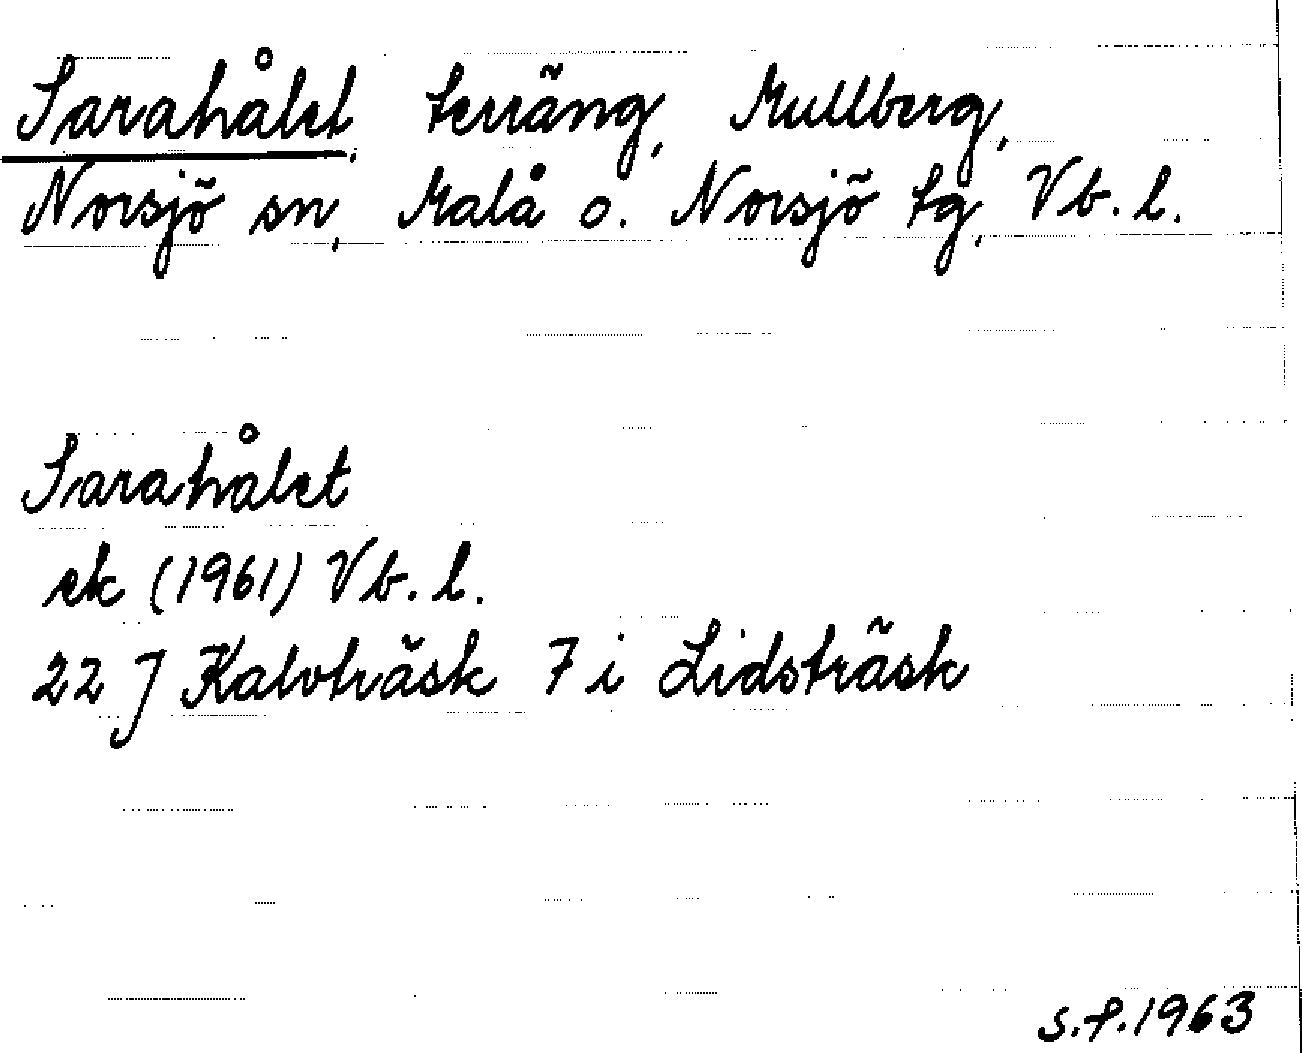 Sarahålet, terräng, Mullberg,
Norsjö sn, Malå o. Norsjö tg, Vb. l.
Sarahålet
ek (1961) Vb. l.
22 J Kalvträsk 7 i Lidsträsk
s.f. 1963